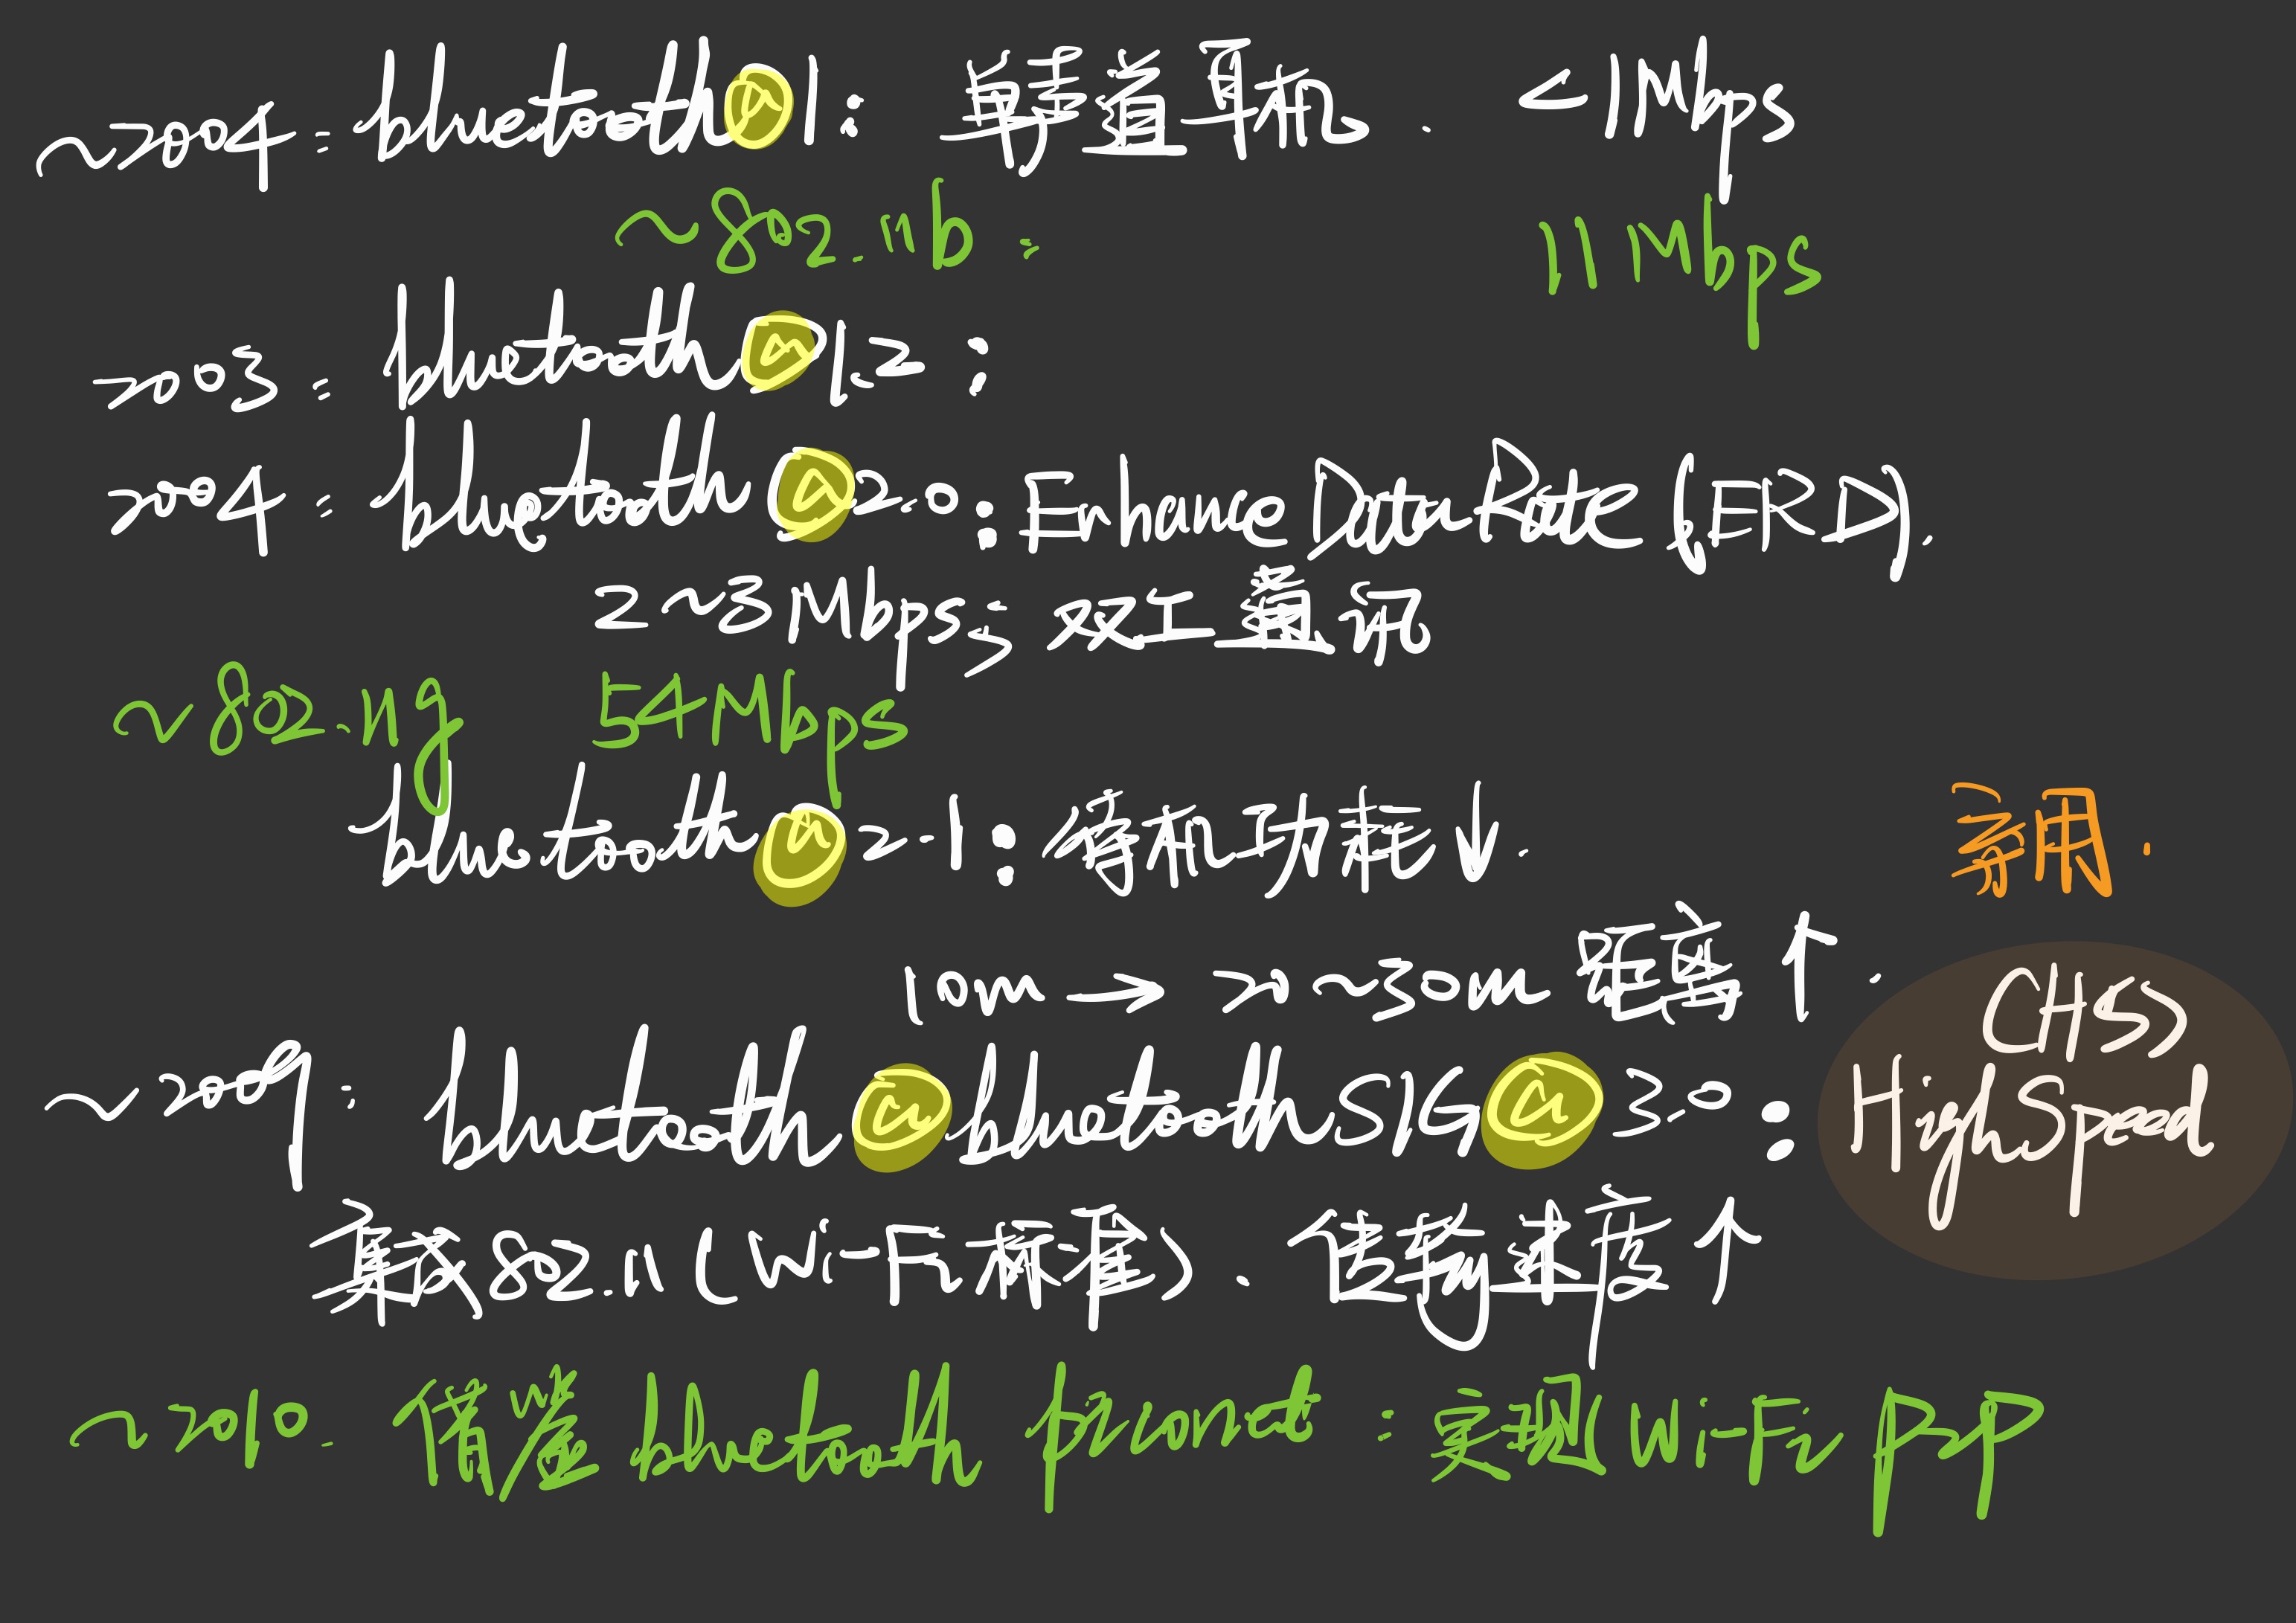 ~2004: bluetooth® 1: 耳机. <1Mbps
~802.11b: 11Mbps
2003: bluetooth® 1.2:
2004: bluetooth® 2.0: Enhance Data Rate (ERD),
2~3Mbps, 双工
~802.11g 54Mbps
bluetooth® 2.1: 待机功耗↓. 耳.
10m → 20~30m 距离↑.
(HS)
~2009: bluetooth® bluetooth SIG® 3.0: High Speed
802.11 (Wi-Fi 标准). 传输速度↑
~2010. bluetooth : 实现 Wi-Fi PP